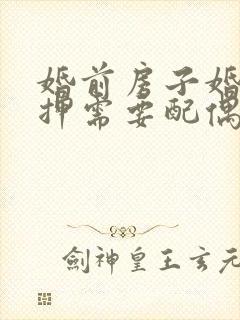 婚前房子婚
押需要配偶
劍神皇王玄元